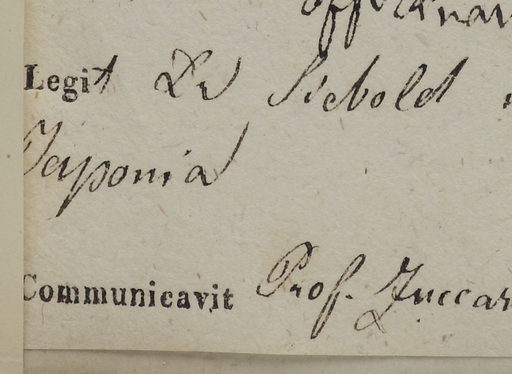 Legit Dr Siebold
Japonia
Communicavit Prof. Zuccar